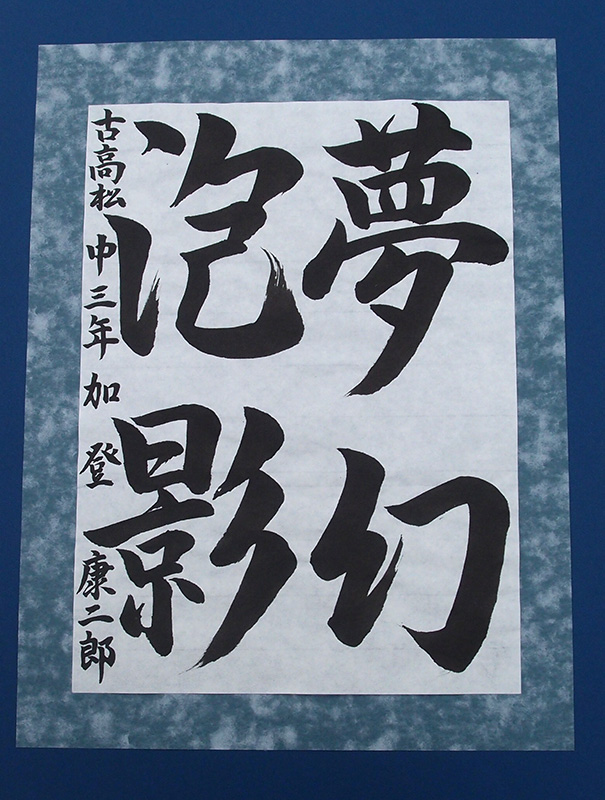 夢幻
泡影
古高松中三年加登康二郎